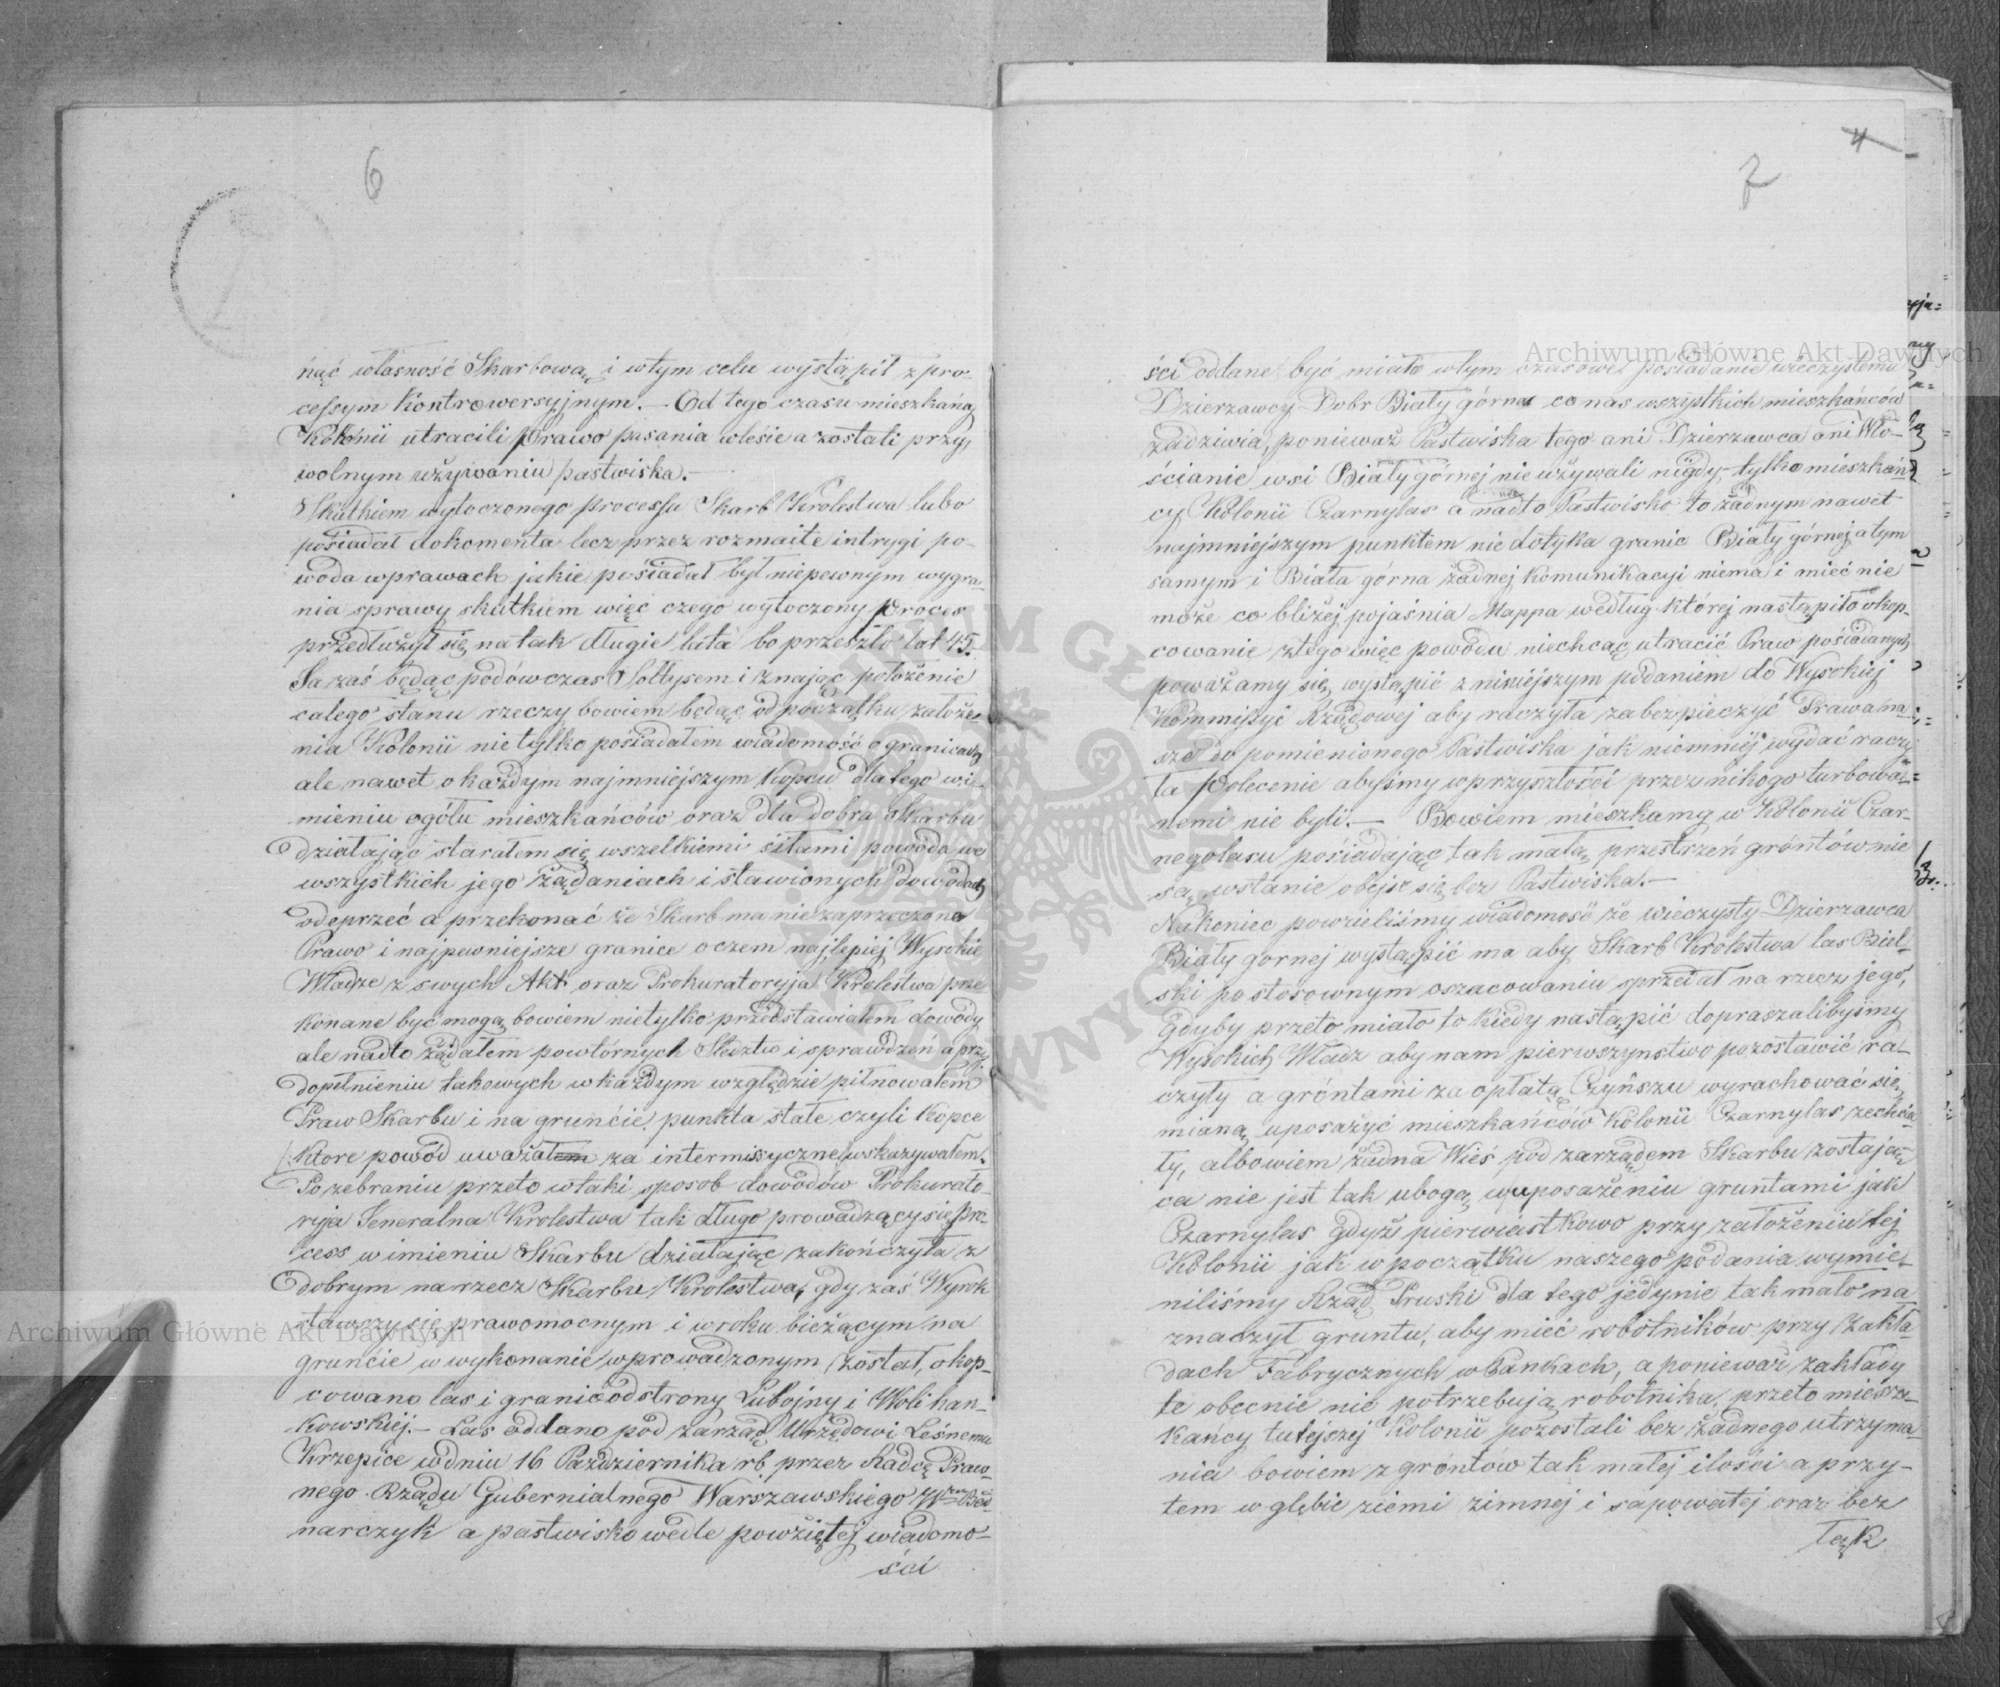 6
nąć własność Skarbową i wtym celu wystąpił z pro-
cessym Kontrowersyjnym. — Od tego czasu mieszkańcy
Kolonii utracili prawo pasania wlesie a zostali przy
wolnym używaniu pastwiska. —
Skutkiem wytoczonego processu Skarb Krolestwa lubo
posiadał dokomenta lecz przez rozmaite intrygi po-
woda wprawach jakie posiadał był niepewnym wygra-
nia sprawy skutkiem więc czego wytoczony Proces
przedłużył się na tak długie luta bo przeszło lat 45.
Ja zaś będąc podówczas Sołtysem i znając położenie
całego stanu rzeczy bowiem będąc od początku założe-
nia Kolonii nie tylko posiadałem wiadomość o granicach
ale nawet o każdym najmniejszym Kopcu dla tego wi-
mieniu ogółu mieszkańców oraz dla dobra Skarbu
działając starałem się wszelkiemi siłami powoda we
wszystkich jego żądaniach i stawionych dowodach
odeprzeć a przekonać że Skarb ma niezaprzeczone
Prawo i najpewniejsze granice o czem najlepiej Wysokie
Władze z swych Akt oraz Prokuratoryja Krolestwa prze
konane być mogą bowiem nietylko przedstawiałem dowody
ale nadto żądałem powtórnych Sledztw i sprawdzeń a przy
dopełnieniu takowych w każdym względzie pilnowałem
Praw Skarbu i na gruncie punkta stałe czyli Kopce
które powód uważałem za intermissyczne wskazywałem.
Po zebraniu przeto wtaki sposob dowodów Prokurato-
ryja Jeneralna Krolestwa tak długo prowadzący się pro-
cess w imieniu Skarbu działając zakończyła z
dobrym na rzecz Skarbu Krolestwa, gdy zaś Wyrok
stawszy się prawomocnym i wroku bieżącym na
gruncie w wykonanie wprowadzonym został, okop-
cowano las i granice od strony Lubojny i Woli han-
kowskiej. — Las oddano pod zarząd Urzędowi Leśnemu
Krzepice w dniu 16 Października rb przez Radcę Praw-
nego Rządu Gubernialnego Warszawskiego Wgo Bed
narczyk a pastwisko wedle powziętej wiadomo-
ści
4
7
ści oddane być miało wtym czasowe posiadanie wieczystemu
Dzierzawcy Dobr Biały górna co nas wszystkich mieszkańców
zadziwia, ponieważ Pastwiska tego ani Dzierzawca ani Wło-
ścianie wsi Biały górnej nie używali nigdy, tylko mieszkań
cy Kolonii Czarnylas a nadto Pastwisko to żadnym nawet
najmniejszym punktem nie dotyka granic Biały górnej a tym
samym i Biała górna żadnej Komunikacyi niema i mieć nie
może co bliżej pojaśnia Mappa według której nastąpiło okop-
cowanie z tego więc powodu niechcąc utracić Praw posiadanych
poważamy się wystąpić z niniejszym podaniem do Wysokiej
Kommissyi Rządowej aby raczyła zabezpieczyć Prawa na-
sze do pomienionego Pastwiska jak niemniej wydać raczy
ła Polecenie abyśmy wprzyszłości przez nikogo turbowa-
nemi nie byli. — Bowiem mieszkamy w Kolonii Czar-
negolasu posiadając tak małą przestrzeń gróntów nie
są wstanie obejść się bez Pastwiska. —
Nakoniec powzieliśmy wiadomość że wieczysty Dzierzawca
Biały gornej wystąpić ma aby Skarb Krolestwa las Biel-
ski po stosownym oszacowaniu sprzedał na rzecz jego,
Gdyby przeto miało to kiedy nastąpić dopraszalibyśmy
Wysokich Władz aby nam pierwszynstwo pozostawić ra-
czyły a gróntami za opłatą Czynszu wyrachować się
mianą uposażyć mieszkańców Kolonii Czarnylas zechcia
ły, albowiem żadna Wieś pod zarządem Skarbu zostają-
ca nie jest tak ubogą w uposażeniu gruntami jak
Czarnylas Gdyż pierwiastkowo przy założeniu tej
Kolonii jak w początku naszego podania wymie-
niliśmy Rząd Pruski dla tego jedynie tak mało na
znaczył gruntu, aby mieć robotników przy Zakła-
dach Fabrycznych w Pankach, a ponieważ zakłady
te obecnie nie potrzebują robotnika, przeto miesz-
kańcy tutejszej Kolonii pozostali bez żadnego utrzyma-
nia bowiem z gróntów tak małej ilości a przy-
tem w głębie ziemi zimnej i sapowatej oraz bez
łąk
Archiwum Główne Akt Dawnych
Archiwum Główne Akt Dawnych